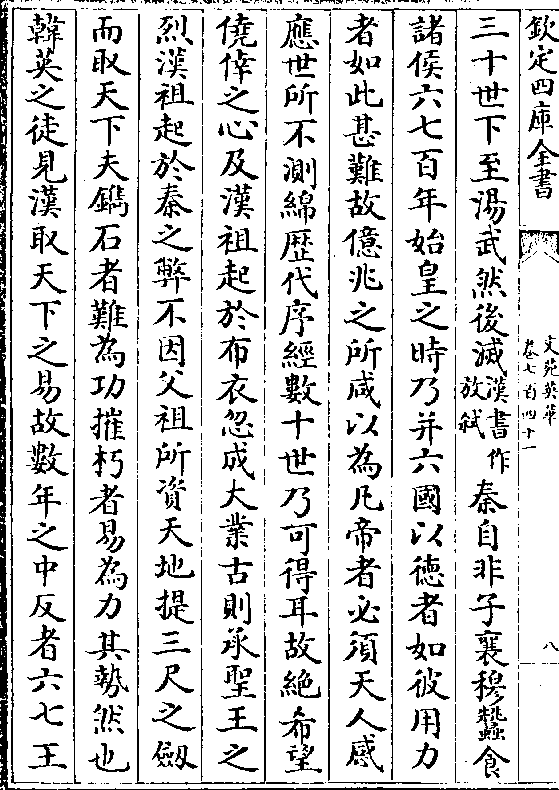 欽定四庫全書
文苑英華
卷七百四十一
八
三十世下至湯武然後滅漢書作放弒秦自非子襄穆蠶食
諸侯六七百年始皇之時乃并六國以德者如彼用力
者如此甚難故億兆之所咸以為凡帝者必須天人感
應世所不測綿歴代序經數十世乃可得耳故絶希望
僥倖之心及漢祖起於布衣忽成大業古則承聖王之
烈漢祖起於秦之弊不因父祖所資天地提三尺之劔
而取天下夫鐫石者難為功摧朽者易為力其勢然也
韓英之徒見漢取天下之易故數年之中反者六七王